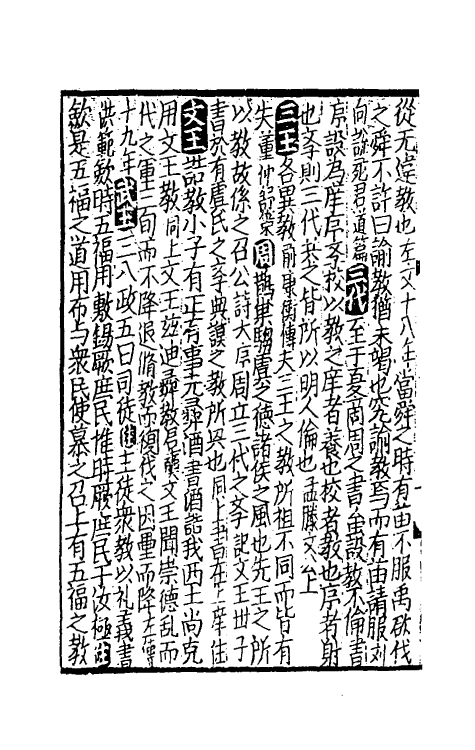 從无違教也左文十八年當舜之時有苗不服禹欲伐
之舜不許曰諭教猶未竭也究諭教焉而有苗請服刘
向說苑君道篇三代至于夏商周之書虽設教不倫書
序設為庠序孝校以教之庠者養也校者教也序者射
也孝則三代共之皆所以明人倫也孟滕文公上
三王各異教前董仲舒傳夫三王之教所祖不同而皆有
失董仲舒策周鵲巢騶虞之德諸侯之風也先王之所
以教故係之召公詩大序周立三代之孝記文王世子
書於有虞氏之孝典謨之教所兴也同上
文王誥教小子有正有事无彛酒書酒誥我西土尚克
用文王教同上文王兹迪彛教君奭文王聞崇德乱而
伐之軍三旬而不降退脩教而復伐之因壘而降左僖
十九年武王三八政五曰司徒註主徒衆教以礼義書
洪範歛時五福用敷錫厥庶民惟時厥庶民于汝極註
歛是五福之道用布与衆民使慕之召上有五福之教